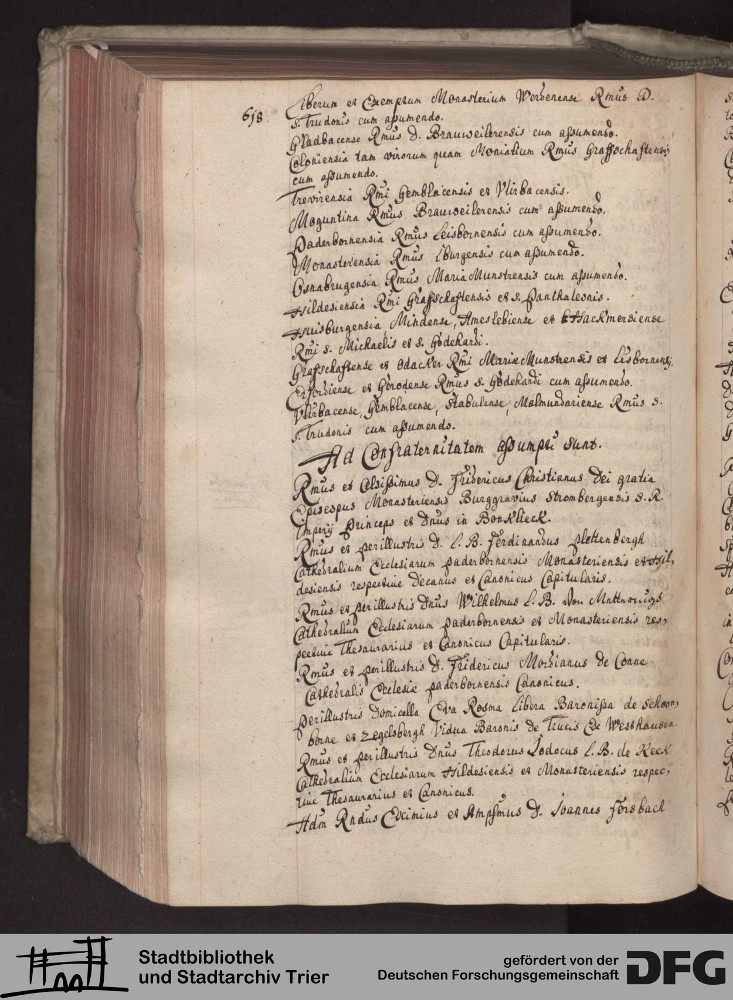 618
Liberum et Exemptum Monasterium Werdenense Rmus D.
S. Trudonis cum assumendo.
Gladbacense Rmus D. Brauweilerensis cum assumendo.
Coloniensia tam virorum quam Monialium Rmus Graffschaftensis
cum assumendo.
Trevirensia Rmi Gemblacensis et Vlirbacensis.
Moguntina Rmus Brauweilerensis cum assumendo.
Paderbornensia Rmus Leisbornensis cum assumendo.
Monasteriensia Rmus Iburgensis cum assumendo.
Osnabrugensia Rmus Mariæ Munstrensis cum assumendo.
Hildesiensia Rmi Graffschaftensis et S. Panthaleonis.
Huisburgensia, Mindense, Ameslebiense et Hackmersiense
Rmi S. Michaelis et S. Godehardi.
Graffschaftense et Odacker Rmi Mariæ Munstrensis et Lisbornensis.
Erfordiense et Gerodense Rmus S. Godehardi cum assumendo.
Vlirbacense, Gemblacense, Stabulense, Malmundariense Rmus D.
S. Trudonis cum assumendo.
Ad Confraternitatem assumpti sunt.
Rmus et Celsissimus D. Fridericus Christianus Dei gratia
Episcopus Monasteriensis Burggravius Strombergensis S. R.
Imperij Princeps et Dnus in Bonklieck.
Rmus et perillustris D. L. B. Ferdinandus Plettenbergh
Cathedralium Ecclesiarum Paderbornensis Monasteriensis et Hil-
desiensis respective Decanus et Canonicus Capitularis.
Rmus et perillustris Dnus Wilhelmus L. B. von
Cathedralium Ecclesiarum Paderbornensis et Monasteriensis res-
pective Thesaurarius et Canonicus Capitularis.
Rmus et perillustris D. Fridericus Mordianus de Conne
Cathedralis Ecclesiæ Paderbornensis Canonicus.
Perillustris Domicella Eva Rosina Libera Baronissa de Schoon-
borne et Zegelsbergh Vidua Baronis de et Westhausen.
Rmus et perillustris Dnus Theodorus Jodocus L. B. de Reck
Cathedralium Ecclesiarum Hildesiensis et Monasteriensis respec-
tive Thesaurarius et Canonicus.
Adm Rndus Eximius et Ampsmus D. Joannes Forsbach
Stadtbibliothek
und Stadtarchiv Trier
gefördert von der
Deutschen Forschungsgemeinschaft
DFG